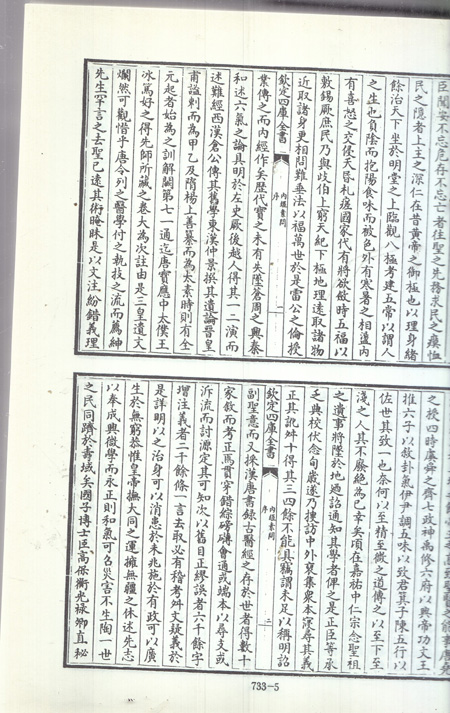 臣聞安不忘危存不忘亡者往聖之先務求民之瘼恤
民之隱者上主之深仁在昔黄帝之御極也以理身緒
餘治天下坐於明堂之上臨觀八極考建五常以謂人
之生也負陰而抱陽食味而被色外有寒暑之相盪内
有喜怒之交侵夭昬札瘥國家代有將欲斂時五福以
敷錫厥庶民乃與岐伯上窮天紀下極地理逺取諸物
近取諸身更相問難垂法以福萬世於是雷公之倫授
欽定四庫全書
内經素問
序
一
業傳之而内經作矣歴代寶之未有失墜蒼周之興秦
和述六氣之論具明於左史厥後越人得其一二演而
述難經西漢倉公傳其舊學東漢仲景撰其遺論晉皇
甫謐刺而為甲乙及隋楊上善纂而為太素時則有全
元起者始為之訓解闕第七一通迄唐寶應中太僕王
冰篤好之得先師所藏之卷大為次註猶是三皇遺文
爛然可觀惜乎唐令列之醫學付之執技之流而薦紳
先生罕言之去聖已逺其術晻昧是以文注紛錯義理
之授四時虞舜之齊七政神禹修六府以興帝功文王
推六子以敘卦氣伊尹調五味以致君箕子陳五行以
佐世其致一也奈何以至精至微之道傳之以至下至
淺之人其不廢絶為已幸矣頃在嘉祐中仁宗念聖祖
之遺事將墜於地迺詔通知其學者俾之是正臣等承
乏典校伏念旬嵗遂乃搜訪中外裒集衆本寖尋其義
正其訛舛十得其三四餘不能具竊謂未足以稱明詔
欽定四庫全書
内經素問
序
二
副聖意而又採漢唐書録古醫經之存於世者得數十
家敘而考正焉貫穿錯綜磅礴會通或端本以尋支或
泝流而討源定其可知次以舊目正繆誤者六千餘字
増注義者二千餘條一言去取必有稽考舛文疑義於
是詳明以之治身可以消患於未兆施於有政可以廣
生於無窮恭惟皇帝撫大同之運擁無疆之休述先志
以奉成興微學而永正則和氣可召災害不生陶一世
之民同躋於壽域矣國子博士臣高保衡光祿卿直秘
733-5